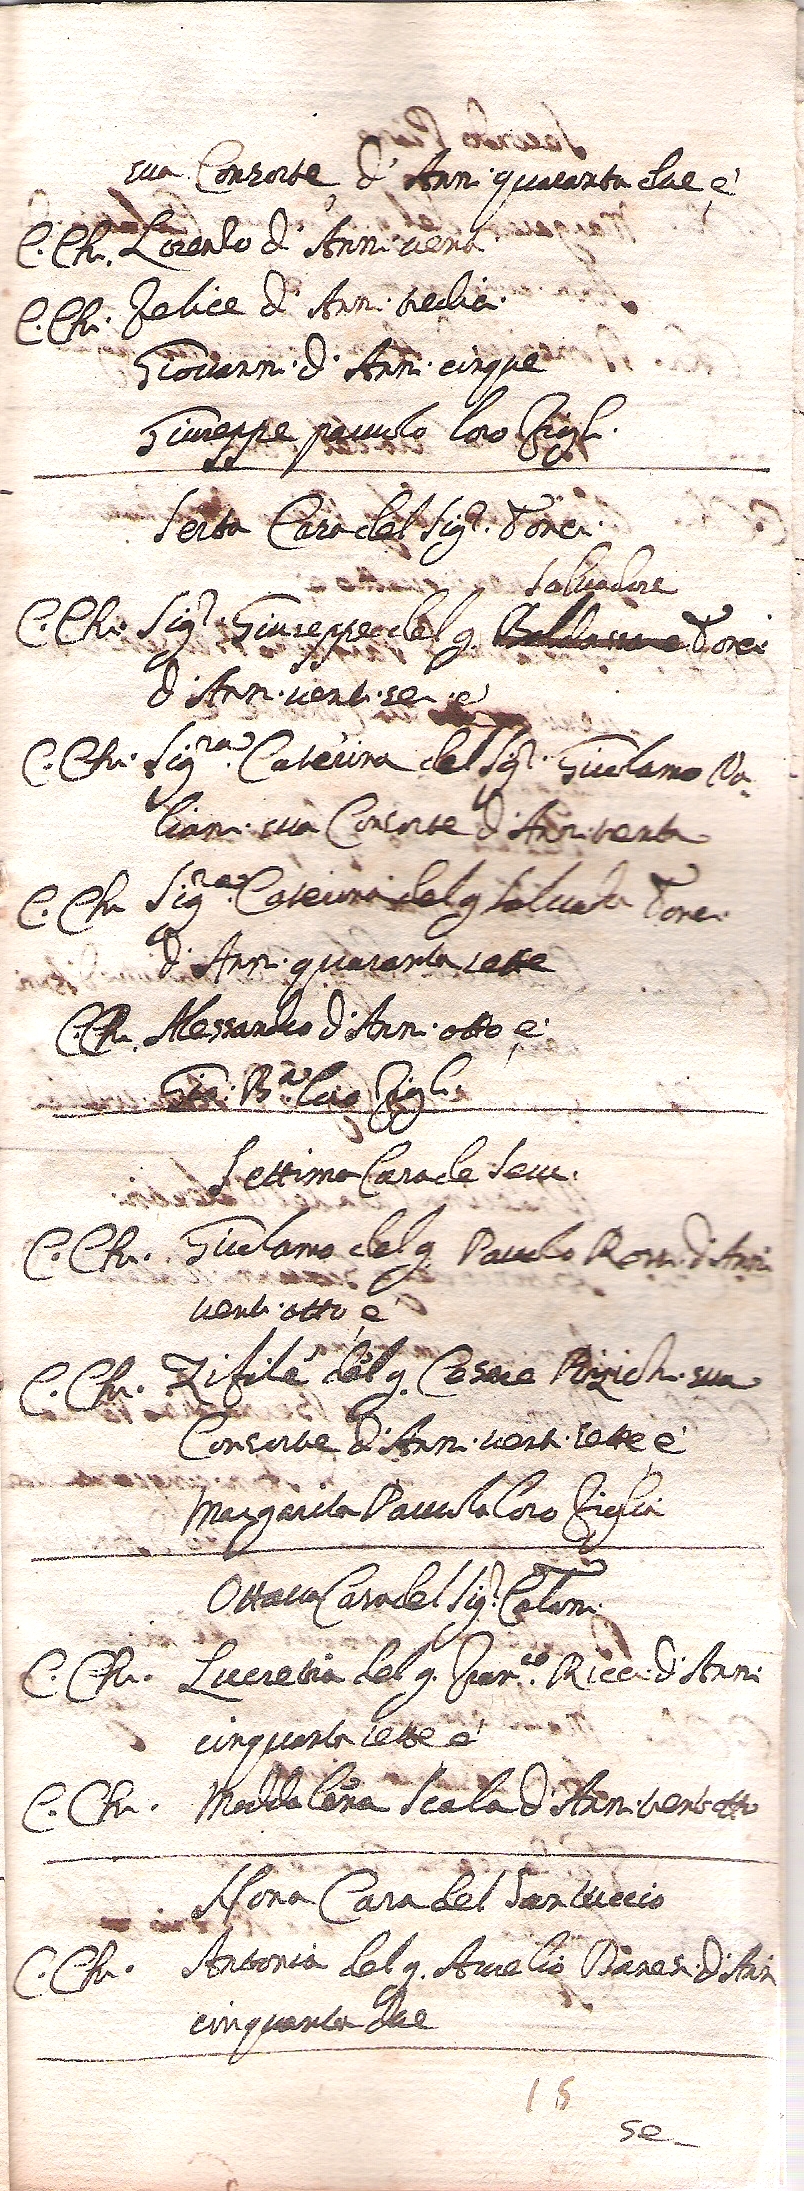 sua Consorte d'Anni quaranta due e'
C. Ch. Lorenzo d'Anni venti
C. Ch. Felice d'Anni
Giovanni d'Anni cinque
Giuseppe pauulo loro Figli.
Sesta Casa del Sigr. Torci
Salvadore
C. Ch. Sigr. Giuseppe del q. Torci
d'Anni venti sei e'
C. Ch. Sigra. Caterina del Sigr. Girolamo Va=
liani sua Consorte d'Anni trenta
C. Ch. Sigra. Caterina del q Torci
d'Anni quaranta sette
C. Ch. Alessandro d'Anni otto e'
Gio: Bta. loro Figli.
Settima Casa de
C. Ch. Girolamo del q. Paulo Rossi d'Anni
vent'otto e
C. Ch. del q. Cesare sua
Consorte d'Anni venti sette e'
Margarita Pauula loro Figlia
Ottava Casa del Sigr.
C. Ch. Lucretia del q. Franco. Ricci d'Anni
cinquanta sette e'
C. Ch. Maddalena Scala d'Anni vent'otto
Nona Casa del Santuccio
C. Ch. Antonia del q. Aurelio d'Anni
cinquanta due
15
se_